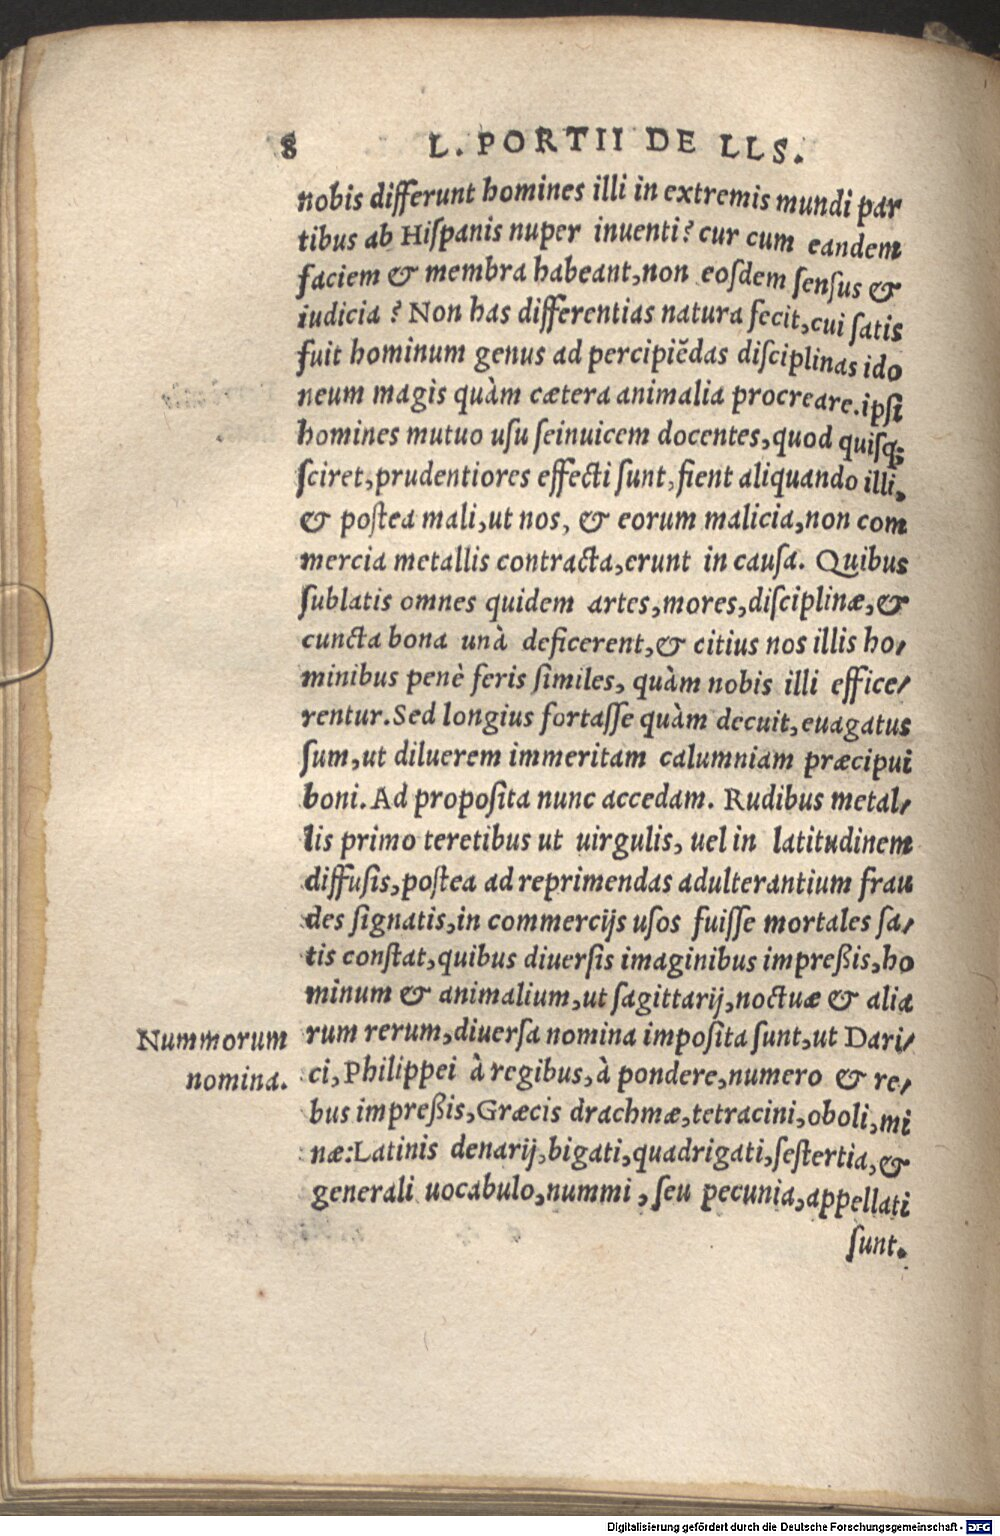 8 L. PORTII DE LLS.
nobis differunt homines illi in extremis mundi par
tibus ab Hiſpanis nuper inuenti? cur cum eandem
faciem & membra habeant, non eoſdem ſenſus &
iudicia? Non has differentias natura fecit, cui ſatis
fuit hominum genus ad percipiẽdas diſciplinas ido
neum magis quàm cætera animalia procreare. ipſi
homines mutuo uſu ſeinuicem docentes, quod quiſq;
ſciret, prudentiores effecti ſunt, fient aliquando illi,
& poſtea mali, ut nos, & eorum malicia, non com
mercia metallis contracta, erunt in cauſa. Quibus
ſublatis omnes quidem artes, mores, diſciplinæ, &
cuncta bona unà deficerent, & citius nos illis ho⸗
minibus penè feris ſimiles, quàm nobis illi effice⸗
rentur. Sed longius fortaſſe quàm decuit, euagatus
ſum, ut diluerem immeritam calumniam præcipui
boni. Ad propoſita nunc accedam. Rudibus metal⸗
lis primo teretibus ut uirgulis, uel in latitudinem
diffuſis, poſtea ad reprimendas adulterantium frau
des ſignatis, in commercijs uſos fuiſſe mortales ſa⸗
tis conſtat, quibus diuerſis imaginibus impreßis, ho
minum & animalium, ut ſagittarij, noctuæ & alia
rum rerum, diuerſa nomina impoſita ſunt, ut Dari⸗
ci, Philippei à regibus, à pondere, numero & re⸗
bus impreßis, Græcis drachmæ, tetracini, oboli, mi
næ: Latinis denarij, bigati, quadrigati, ſeſtertia, &
generali uocabulo, nummi, ſeu pecunia, appellati
ſunt.
Nummorum
nomina.
Digitalisierung gefördert durch die Deutsche Forschungsgemeinschaft - DFG